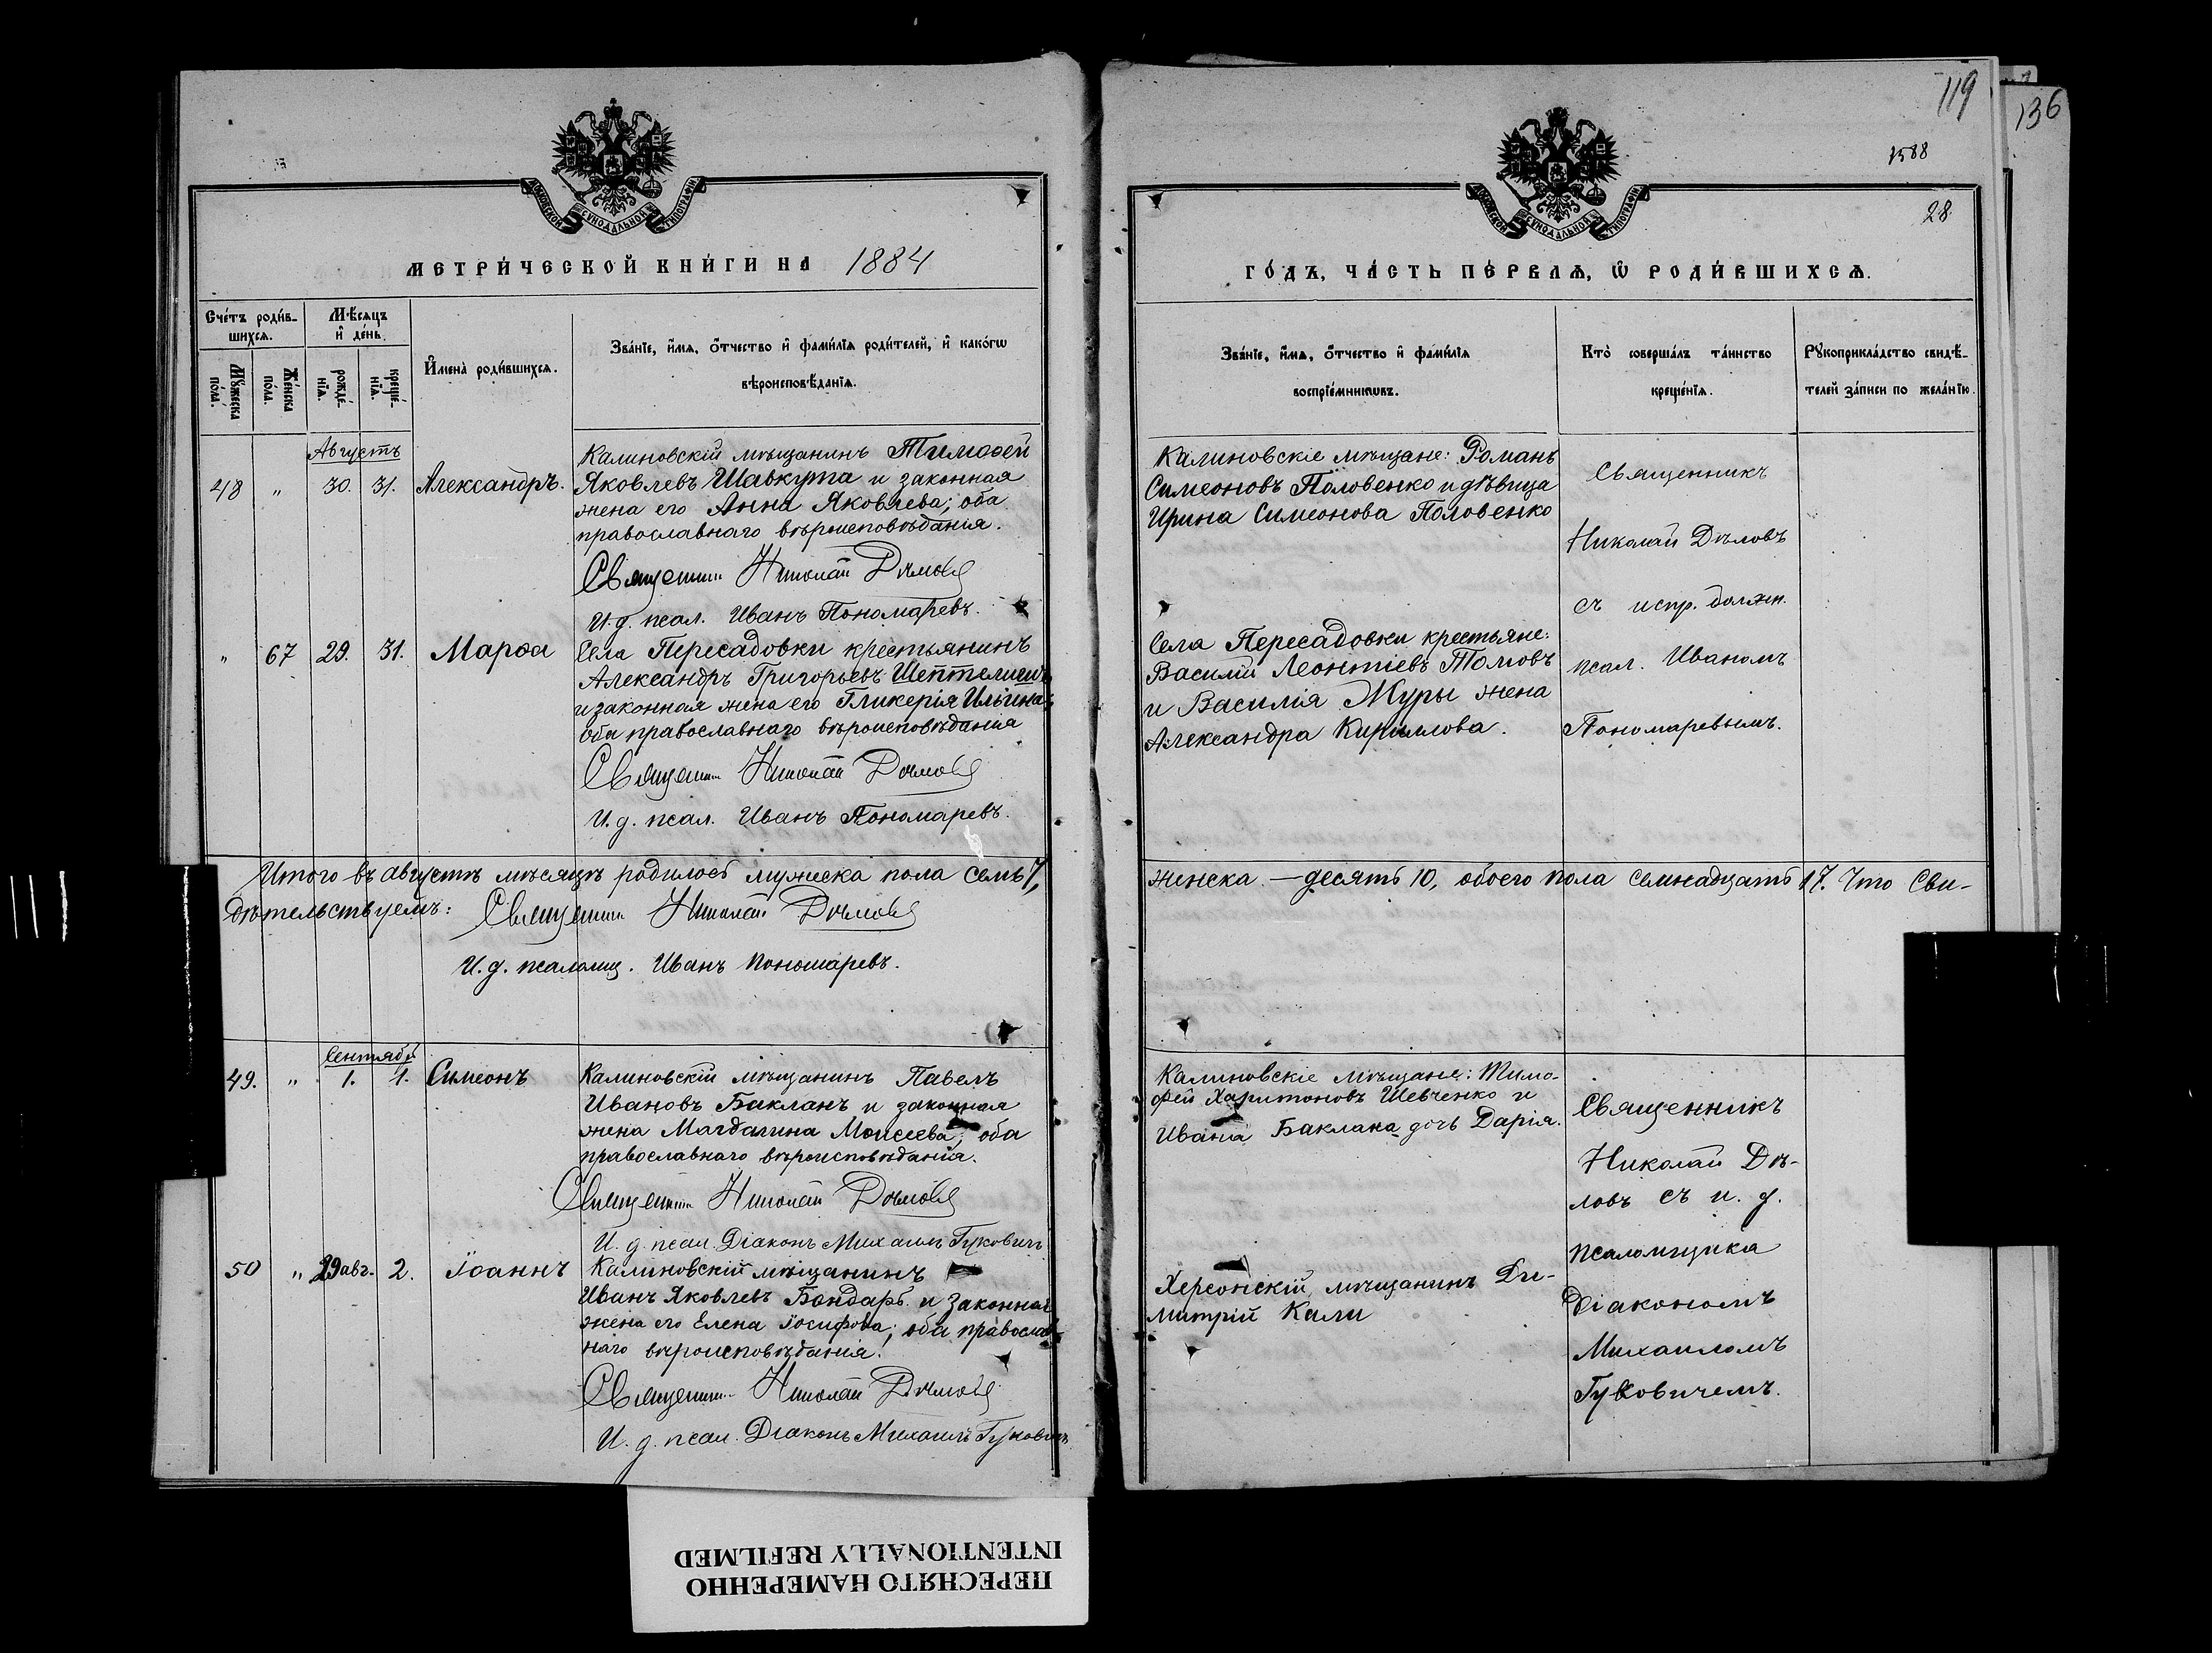 119
136
1588
28
МОСКОВСКОЙ СѴНОДАЛЬНОЙ ТИПОГРАФІИ
МОСКОВСКОЙ СѴНОДАЛЬНОЙ ТИПОГРАФІИ
МЕТРИ́ЧЕСКОЙ КНИ́ГИ НА 1884
ГО́ДЪ, ЧА́СТЬ ПЕ́РВАѦ, Ѽ РОДИ́ВШИХСѦ.
Сче́тъ роди́в-
шихсѧ.
Мꙋ́жеска по́ла.
Же́нска по́ла.
Мѣ́сѧцъ
и҆ де́нь.
рожде́-
нїѧ.
креще́-
нїѧ.
И҆мена̀ роди́вшихсѧ.
Зва́нїе, и҆́мѧ, ѻ҆́тчество и҆ фами́лїѧ роди́телей, и҆ како́гѡ
вѣроисповѣ́данїѧ.
Зва́нїе, и҆́мѧ, ѻ҆́тчество и҆ фами́лїѧ
воспрїе́мникѡвъ.
Кто̀ соверша́лъ та́инство
креще́нїѧ.
Рꙋкоприкла́дство свидѣ́-
телей за́писи по жела́нїю.
Августъ
48 " 30. 31. Александръ.
Калиновскій мѣщанинъ Тимофей
Яковлевъ Шавкута и законная
жена его Анна Яковлева; оба
православнаго вѣроисповѣданія.
Священник Николай Дѣловъ
И. д. псал. Иванъ Пономаревъ.
Калиновскіе мѣщане: Романъ
Симеоновъ Половенко и дѣвица
Ирина Симеонова Половенко
Священникъ
Николай Дѣловъ
съ испр. должн.
псал. Иваномъ
Пономаревымъ.
" 67 29. 31. Марѳа
Села Пересадовки крестьянинъ
Александръ Григорьевъ
и законная жена его Гликерія Ильина
оба православнаго вѣроисповѣданія
Священник Николай Дѣловъ
И. д. псал. Иванъ Пономаревъ.
Села Пересадовки крестьяне:
Василій Леонтіевъ Томовъ
и Василія Журы жена
Александра Кириллова.
Итого въ августѣ мѣсяцѣ родилось мужеска пола семь 7,
женска — десять 10, обоего пола семнадцать 17. Что сви-
дѣтельствуемъ: Священник Николай Дѣловъ
И. д. псаломщ. Иванъ Пономаревъ.
Сентябрь
49. " 1. 1. Симеонъ
Калиновскій мѣщанинъ Павелъ
Ивановъ Бакланъ и законная
жена Магдалина Моисеева; оба
православнаго вѣроисповѣданія.
Священник Николай Дѣловъ
И. д. псал. Діаконъ Михаилъ Гуковичъ
Калиновскіе мѣщане: Тимо-
фей Харитоновъ Шевченко и
Ивана Баклана дочь Дарія.
Священникъ
Николай Дѣ-
ловъ съ и. д.
псаломщика
Діакономъ
Михаиломъ
Гуковичемъ.
50 " 29 авг. 2. Іоаннъ
Калиновскій мѣщанинъ
Иванъ Яковлевъ Бондарь и законная
жена его Елена Іосифова; оба православ-
наго вѣроисповѣданія.
Священник Николай Дѣловъ
И. д. псал. Діаконъ Михаилъ Гуковичъ
Херсонскій мѣщанинъ Ди-
митрій Кали
ПЕРЕСНЯТО НАМЕРЕННО
INTENTIONALLY REFILMED